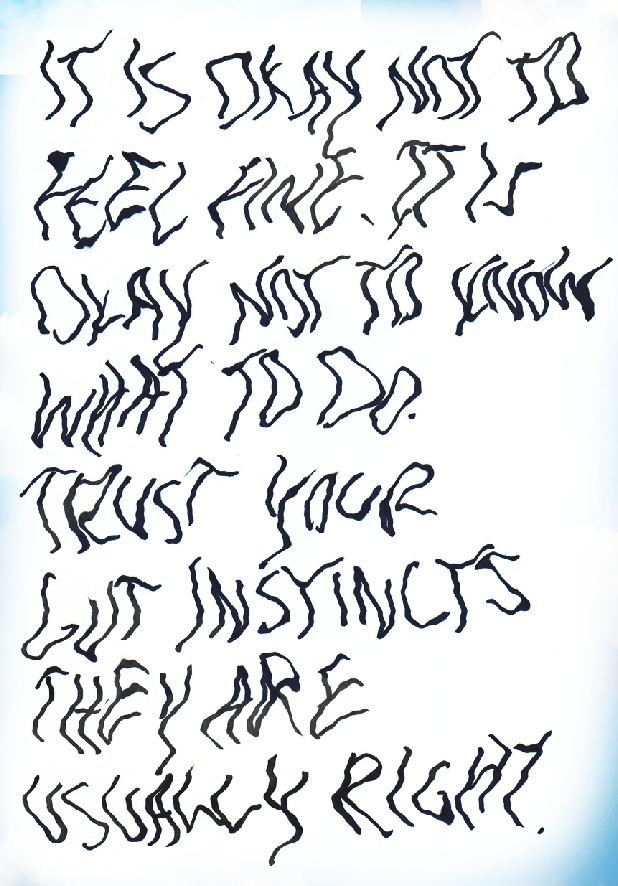 IT IS OKAY NOT TO
FEEL FINE. IT IS
OKAY NOT TO KNOW
WHAT TO DO.
TRUST YOUR
GUT INSTINCTS
THEY ARE
USUALLY RIGHT.